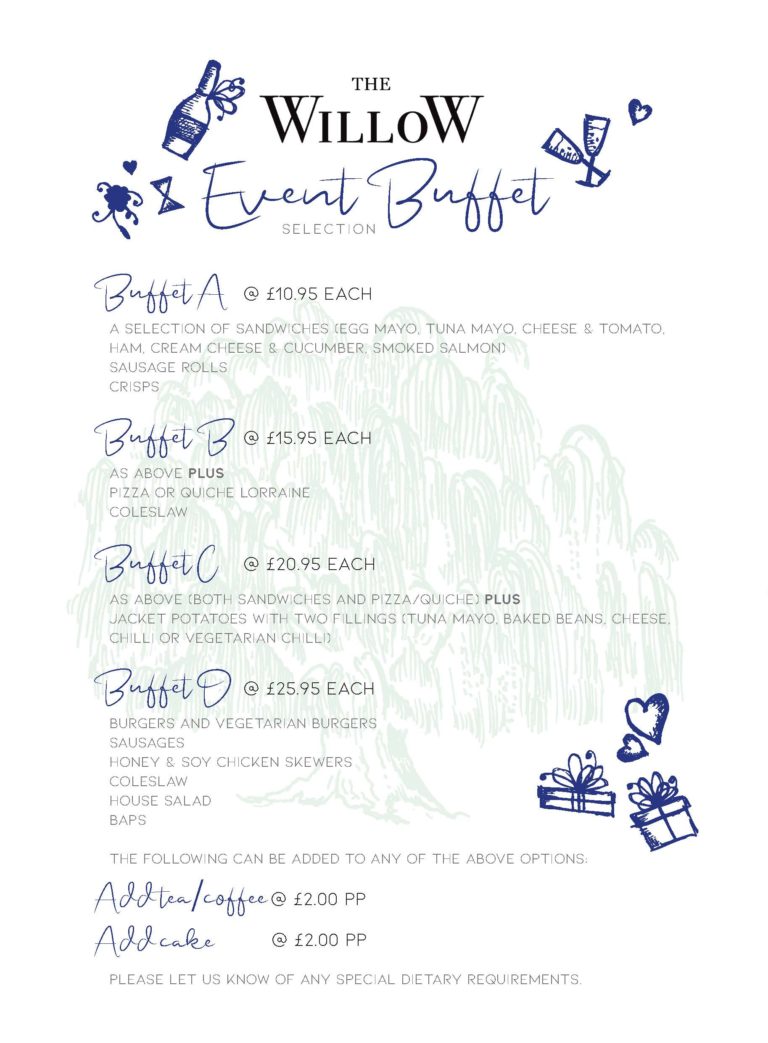 THE
WILLOW
Event Buffet
SELECTION
Buffet A @ £10.95 EACH
A SELECTION OF SANDWICHES (EGG MAYO, TUNA MAYO, CHEESE & TOMATO,
HAM, CREAM CHEESE & CUCUMBER, SMOKED SALMON)
SAUSAGE ROLLS
CRISPS
Buffet B @ £15.95 EACH
AS ABOVE PLUS
PIZZA OR QUICHE LORRAINE
COLESLAW
Buffet C @ £20.95 EACH
AS ABOVE (BOTH SANDWICHES AND PIZZA/QUICHE) PLUS
JACKET POTATOES WITH TWO FILLINGS (TUNA MAYO, BAKED BEANS, CHEESE,
CHILLI OR VEGETARIAN CHILLI)
Buffet D @ £25.95 EACH
BURGERS AND VEGETARIAN BURGERS
SAUSAGES
HONEY & SOY CHICKEN SKEWERS
COLESLAW
HOUSE SALAD
BAPS
THE FOLLOWING CAN BE ADDED TO ANY OF THE ABOVE OPTIONS:
Add tea/coffee @ £2.00 PP
Add cake @ £2.00 PP
PLEASE LET US KNOW OF ANY SPECIAL DIETARY REQUIREMENTS.